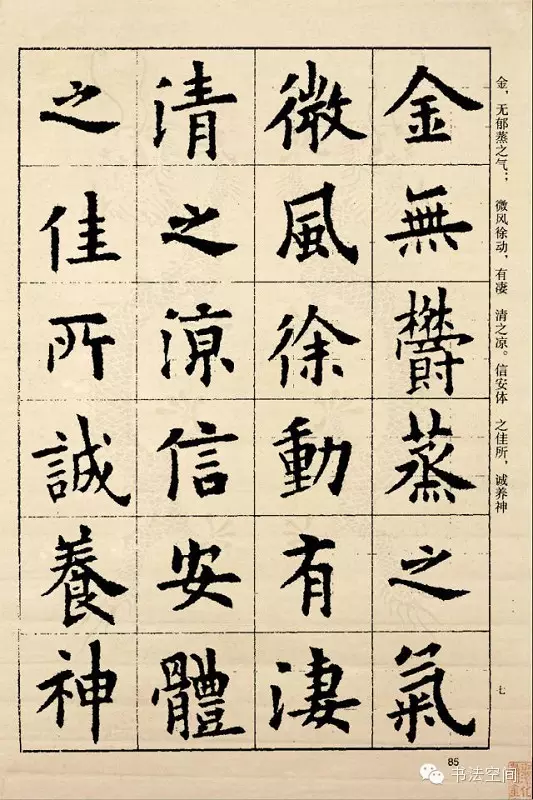 金，无郁蒸之气；微风徐动，有凄清之凉。信安体之佳所，诚养神
金無欝蒸之氣
微風徐動有淒
清之涼信安體
之佳所誠養神
七
85
书法空间